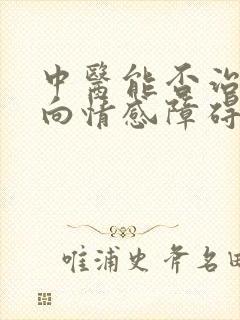 中醫能否治
向情感障碍
唯浦史斧名